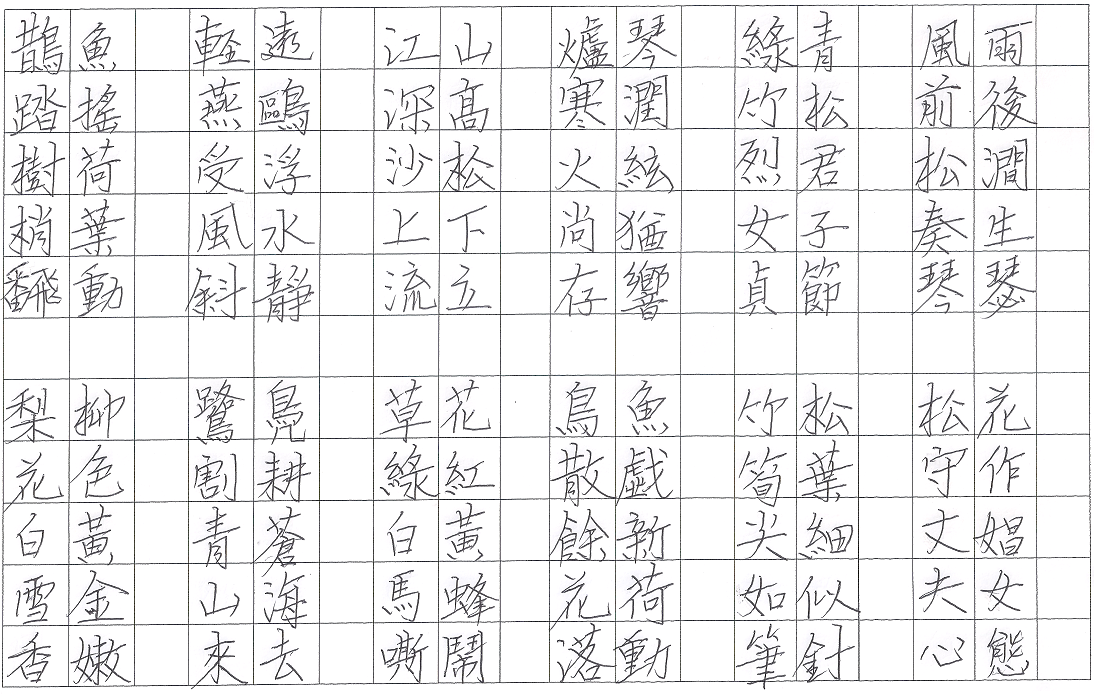 雨後澗生瑟
風前松奏琴
青松君子節
綠竹烈女貞
琴潤絃猶響
爐寒火尚存
山高松下立
江深沙上流
遠鷗浮水靜
軽燕受風斜
魚搖荷葉動
鵲踏樹梢飜
花作娼女態
松守丈夫心
松葉細似針
竹筍尖如筆
魚戯新荷動
鳥散餘花落
花紅黃蜂鬧
草綠白馬嘶
鳧耕蒼海去
鷺割青山來
柳色黃金嫩
梨花白雪香